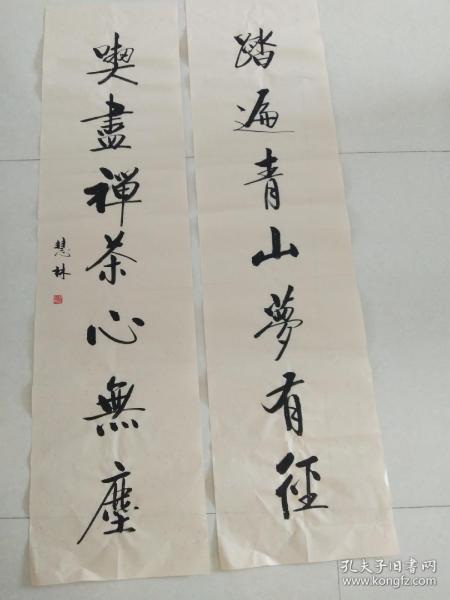 踏遍青山夢有徑
喫盡禪茶心無塵
慧林
孔夫子旧书网
www.kongfz.com